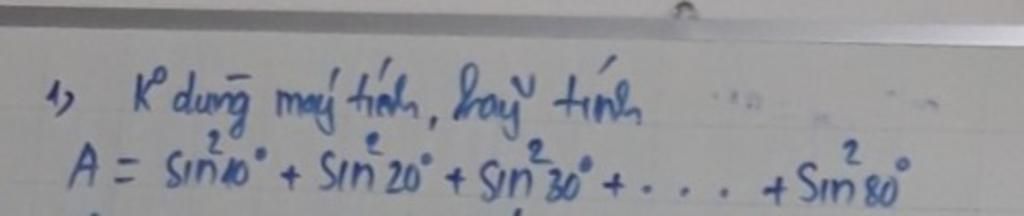 1, K° dung máy tính, hãy tính
A = Sin²10° + Sin²20° + Sin²30° + .... + Sin²80°